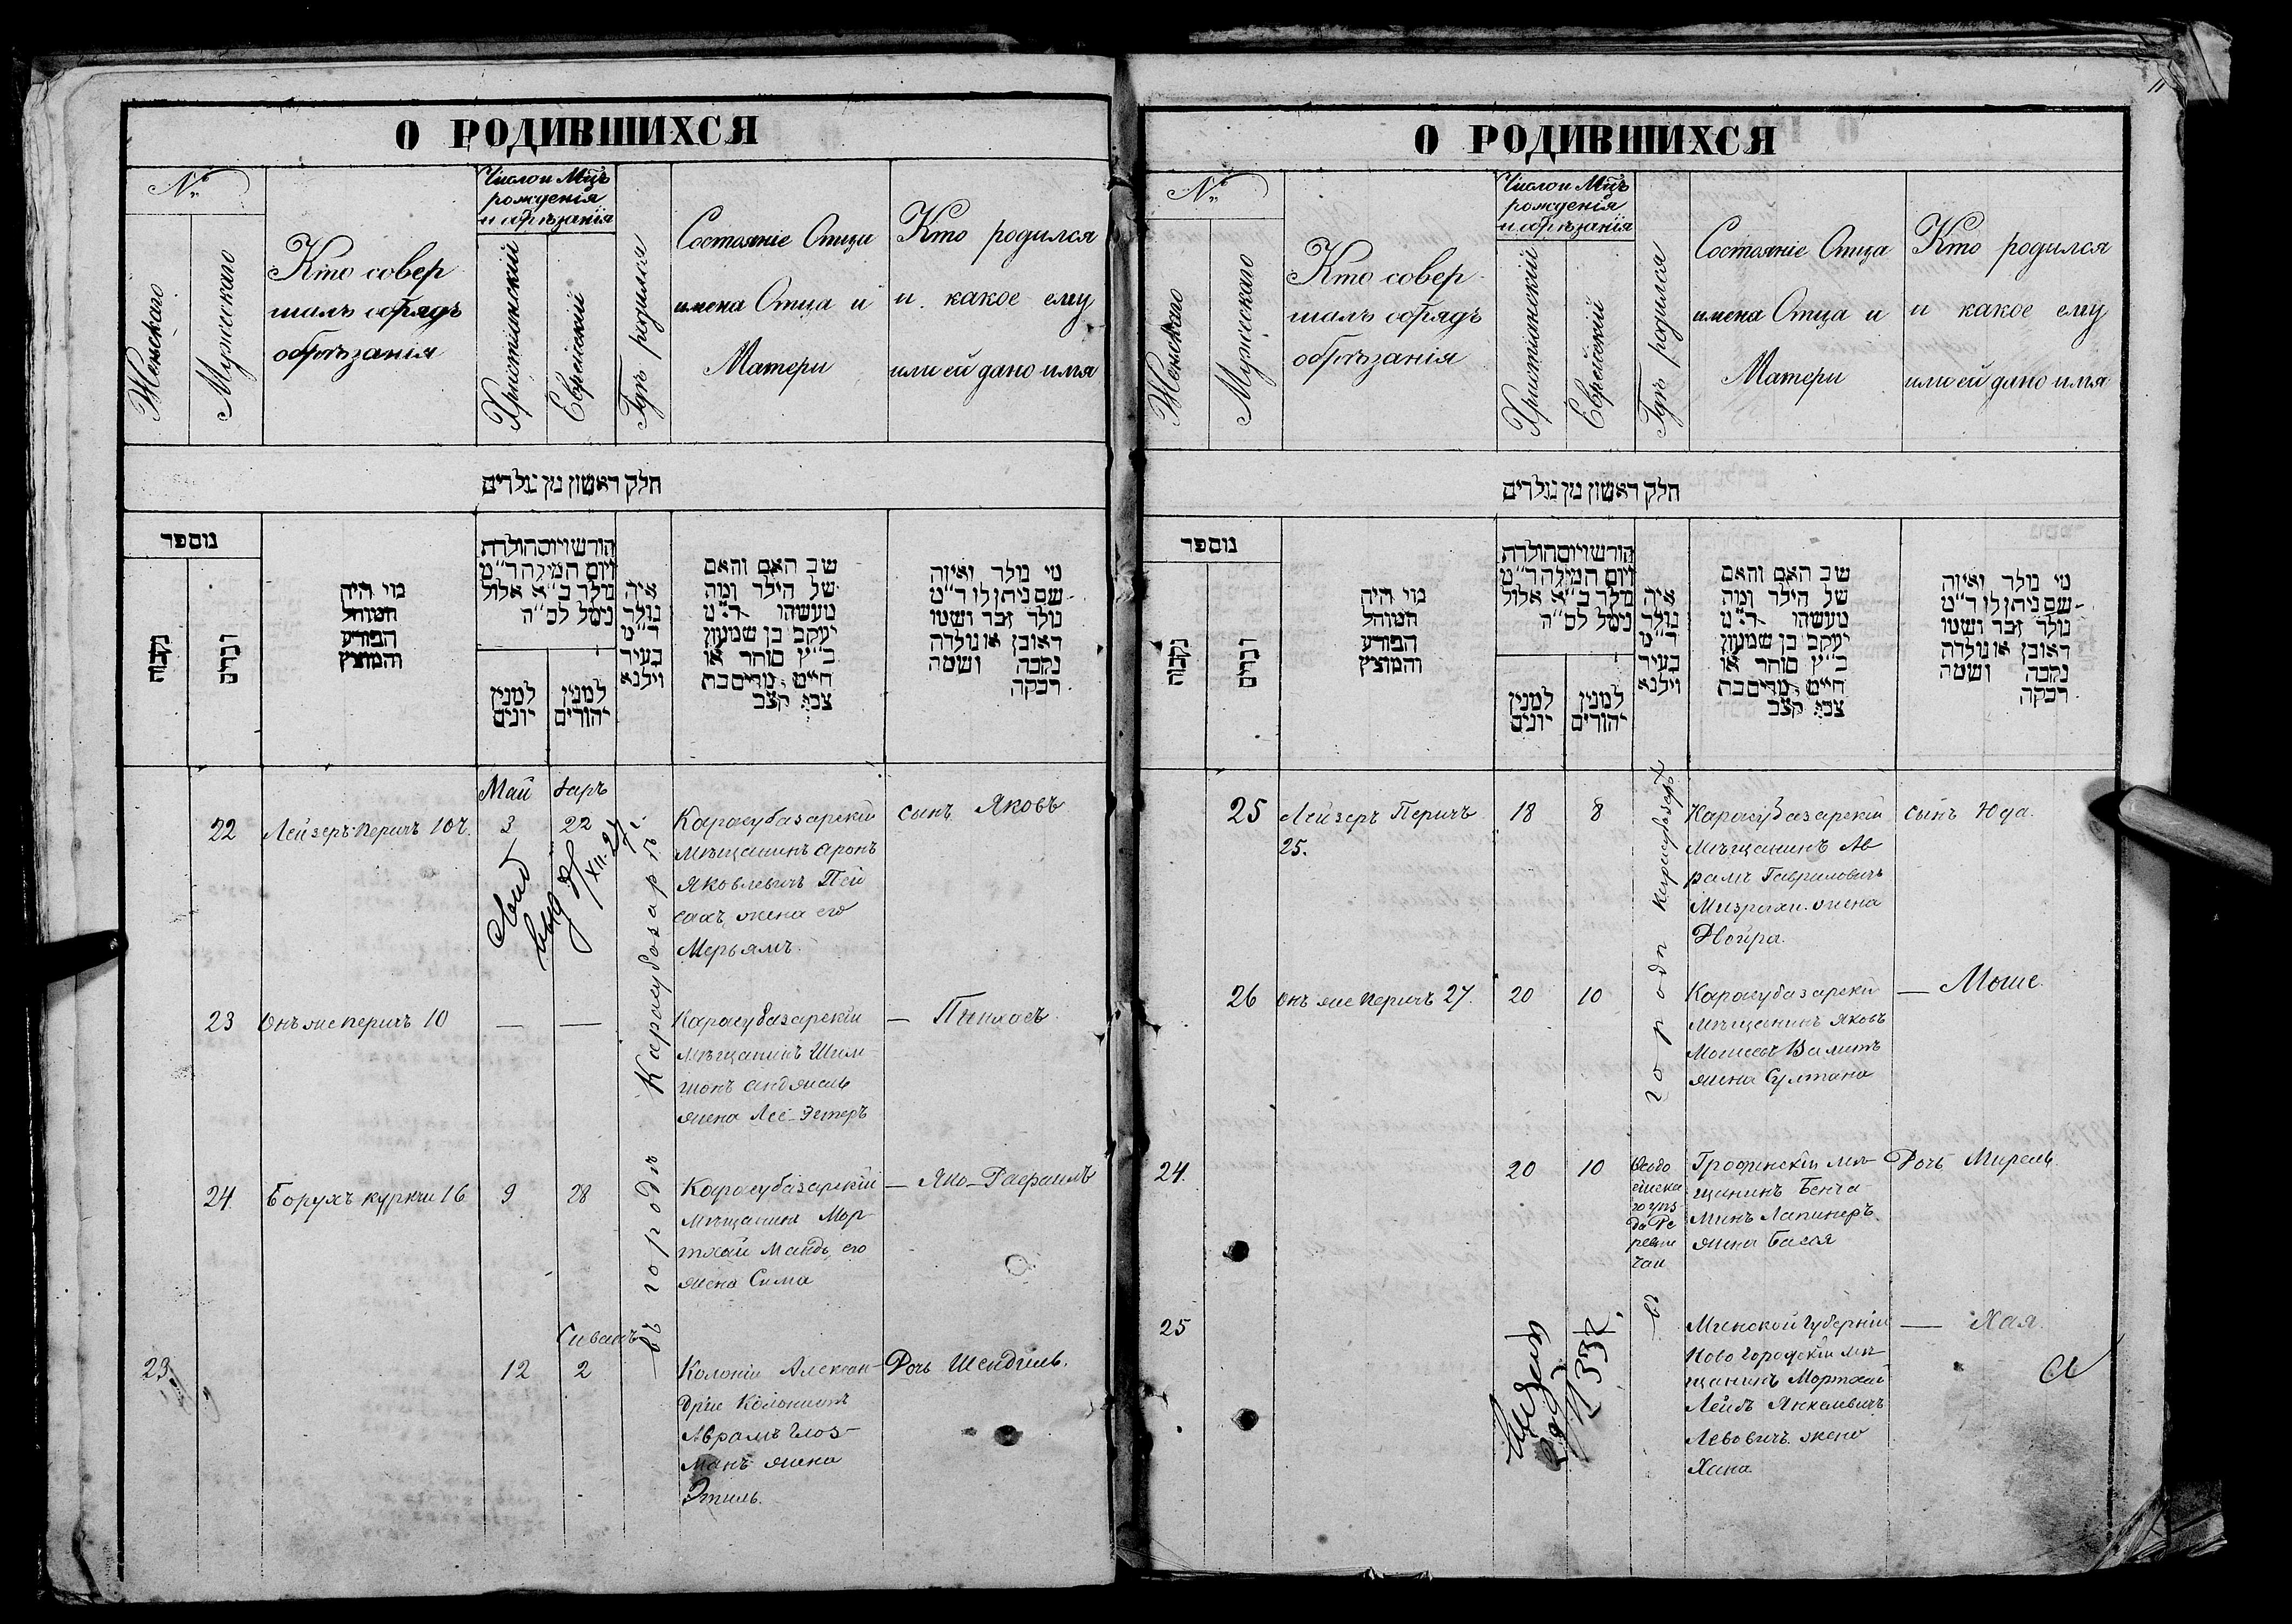 О РОДИВШИХСЯ
№
Женскаго
Мужескаго
Кто совер
шалъ обрядъ
обрѣзанія
Число и Мцъ
рожденія
и обрѣзанія
Христіанскій
Еврейскій
Гдѣ родился
Состояніе Отца
имена Отца и
Матери
Кто родился
и какое ему
или ей дано имя
חלק ראשון מן נולדים
מוספר
נקבות
זכרים
מי היה
המוהל
הפורע
והמוצץ
חודש ויום הולדת
ויום המילה ד"מ
נולד ב"א אלול
נימל לס"ה
למנין
יונים
למנין
יהודים
איה
נולד
ד"מ
בעיר
וילנא
שם האם והאם
של הילד ומה
מעשהו ד"מ
יעקב בן שמעון
כ"ץ סוחר או
חייט מרים בת
צבי קצב
מי נולד ואיזה
שם ניתן לו ד"מ
נולד זכר ושמו
ראובן או נולדה
נקבה ושמה
רבקה
Май
Іаръ
22 Лейзеръ Перичъ 104. 3 22
Карасубазарскій
мѣщанинъ Аронъ
Яковлевичъ Пей
сахъ, жена его
Мерьямъ.
сынъ Яковъ
въ городѣ Карасубазарѣ
XII. 27 г.
23 Онъ же Перичъ 10 — —
Карасубазарскій
мѣщанинъ Шим-
шонъ
жена Лее-Эстеръ
— Пинхасъ
24 Борухъ Куркчи 16 9 28
Карасубазарскій
мѣщанинъ Мор-
тхай Мандъ, его
жена Сима
— Яко-Рафаилъ
Сиванъ
23 12 2
Колоніи Алексан-
дріе Колонистъ
Аврамъ Глоз-
манъ жена
Этиль.
Дочь Шейдиль.
11
О РОДИВШИХСЯ
№
Женскаго
Мужескаго
Кто совер
шалъ обрядъ
обрѣзанія
Число и Мцъ
рожденія
и обрѣзанія
Христіанскій
Еврейскій
Гдѣ родился
Состояніе Отца
имена Отца и
Матери
Кто родился
и какое ему
или ей дано имя
חלק ראשון מן נולדים
מוספר
נקבות
זכרים
מי היה
המוהל
הפורע
והמוצץ
חודש ויום הולדת
ויום המילה ד"מ
נולד ב"א אלול
נימל לס"ה
למנין
יונים
למנין
יהודים
איה
נולד
ד"מ
בעיר
וילנא
שם האם והאם
של הילד ומה
מעשהו ד"מ
יעקב בן שמעון
כ"ץ סוחר או
חייט מרים בת
צבי קצב
מי נולד ואיזה
שם ניתן לו ד"מ
נולד זכר ושמו
ראובן או נולדה
נקבה ושמה
רבקה
25 Лейзеръ Перичъ 18 8
25.
Карасубазарскій
Мѣщанинъ Ав
рамъ Гавриловичъ
Мизрахи. жена
Двойра.
сынъ Юда.
въ городѣ Карасубазарѣ
26 Онъ же Перичъ 27. 20 10
Карасубазарскій
Мѣщанинъ Яковъ
Моисеевъ Валитъ
жена Султана
— Моше.
24 20 10
Ѳеодо
сійска
го уѣз
да
Гродненскій мѣ-
щанинъ Бенъя-
минъ Лапинеръ
жена Бася
Дочь Мирель
25
Минской Губерніи
Новогородскій мѣ-
щанинъ Мортхай
Лейбъ Янкелевичъ
Левовичъ. жена
Хана
— Хая.